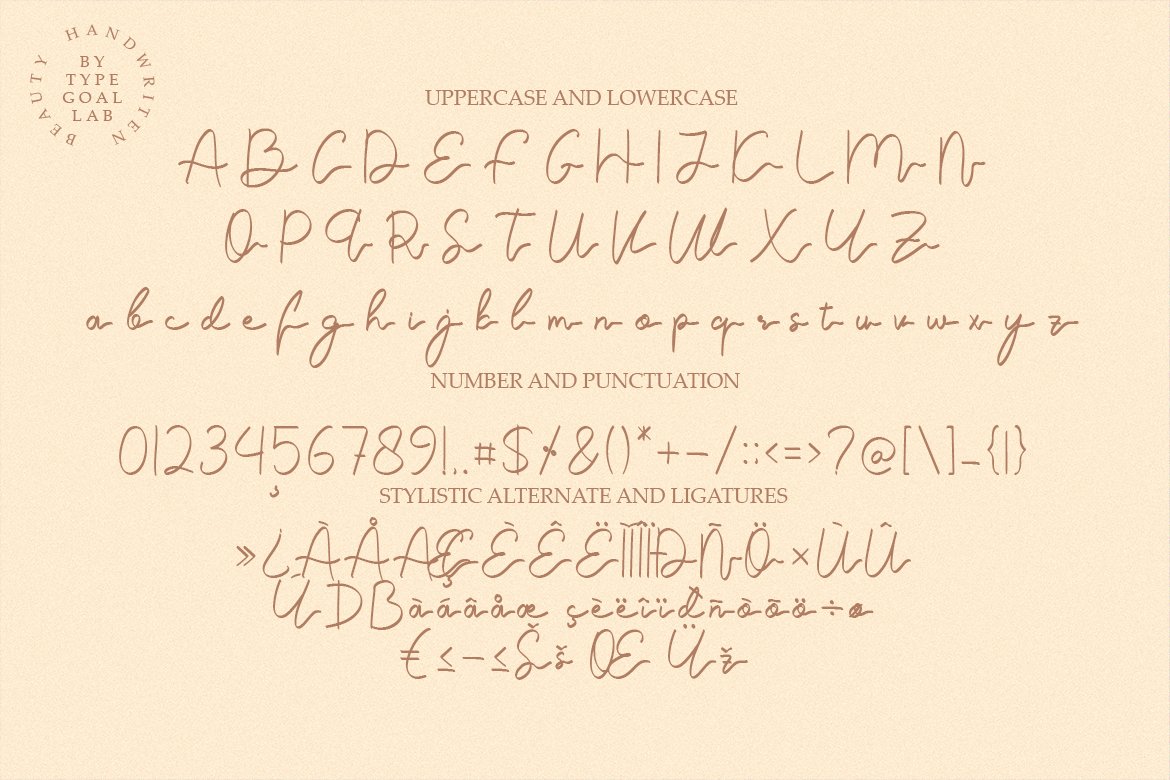 BEAUTY HANDWRITEN
BY
TYPE
GOAL
LAB
UPPERCASE AND LOWERCASE
A B C D E F G H I J K L M N
O P Q R S T U V W X Y Z
a b c d e f g h i j k l m n o p q r s t u v w x y z
NUMBER AND PUNCTUATION
0123456789!,.#$%&()*+-/:;<=>?@[\]_{|}
¸
STYLISTIC ALTERNATE AND LIGATURES
»¿ÀÅAÆÇÈÊËÌÍÎÏÐÑÖ×ÙÛ
ÚDBàáâåæ çèëîïđñòõö÷ø
€≤−≤Šš Œ Üž